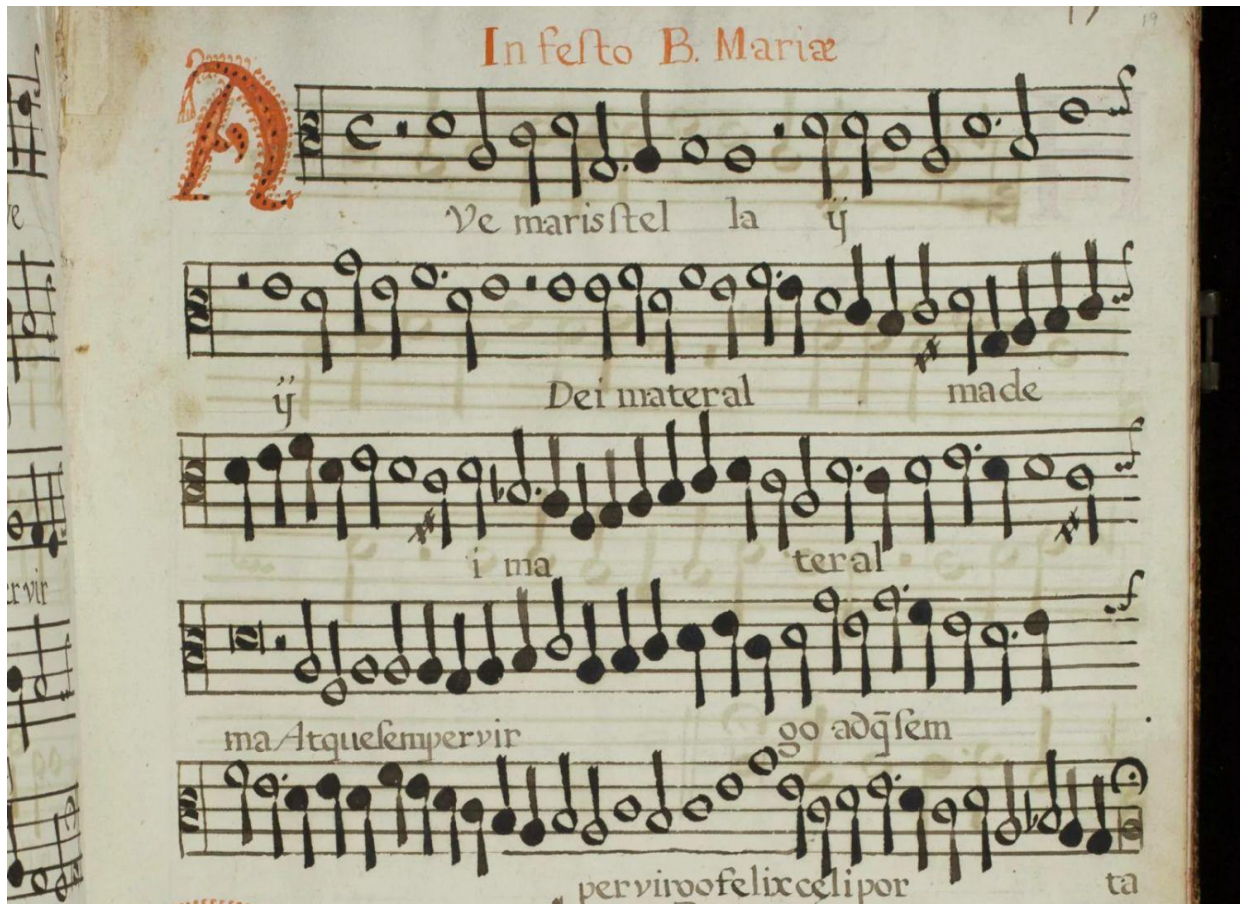 19
In festo B. Mariæ
AVe maris stel la ij
ij Dei mater al ma de
i ma ter al
ma Atque semper vir go adq̄ sem
per virgo felix cęli por ta
ve
er vir